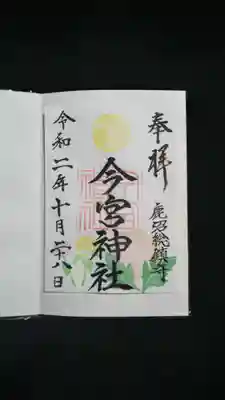 奉拝
鹿沼総鎮守
今宮神社
令和二年十月二十八日